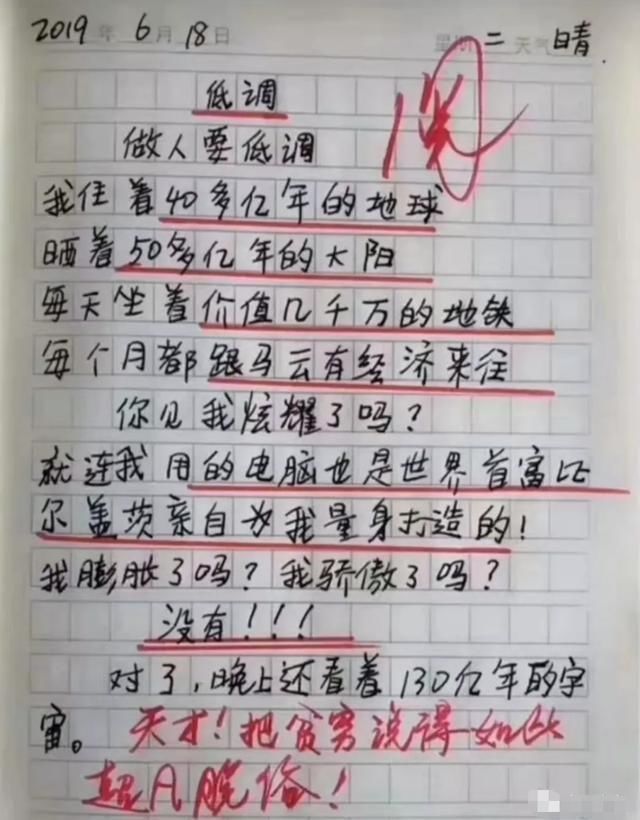 2019年6月18日 星期二 天气晴.
低调
阅
做人要低调
我住着40多亿年的地球
晒着50多亿年的大阳
每天坐着价值几千万的地铁
每个月都跟马云有经济来往
你见我炫耀了吗?
就连我用的电脑也是世界首富比
尔盖茨亲自为我量身打造的!
我膨胀了吗?我骄傲了吗?
没有!!!
对了,晚上还看着130亿年的宇
宙。天才!把贫穷说得如此
超凡脱俗!